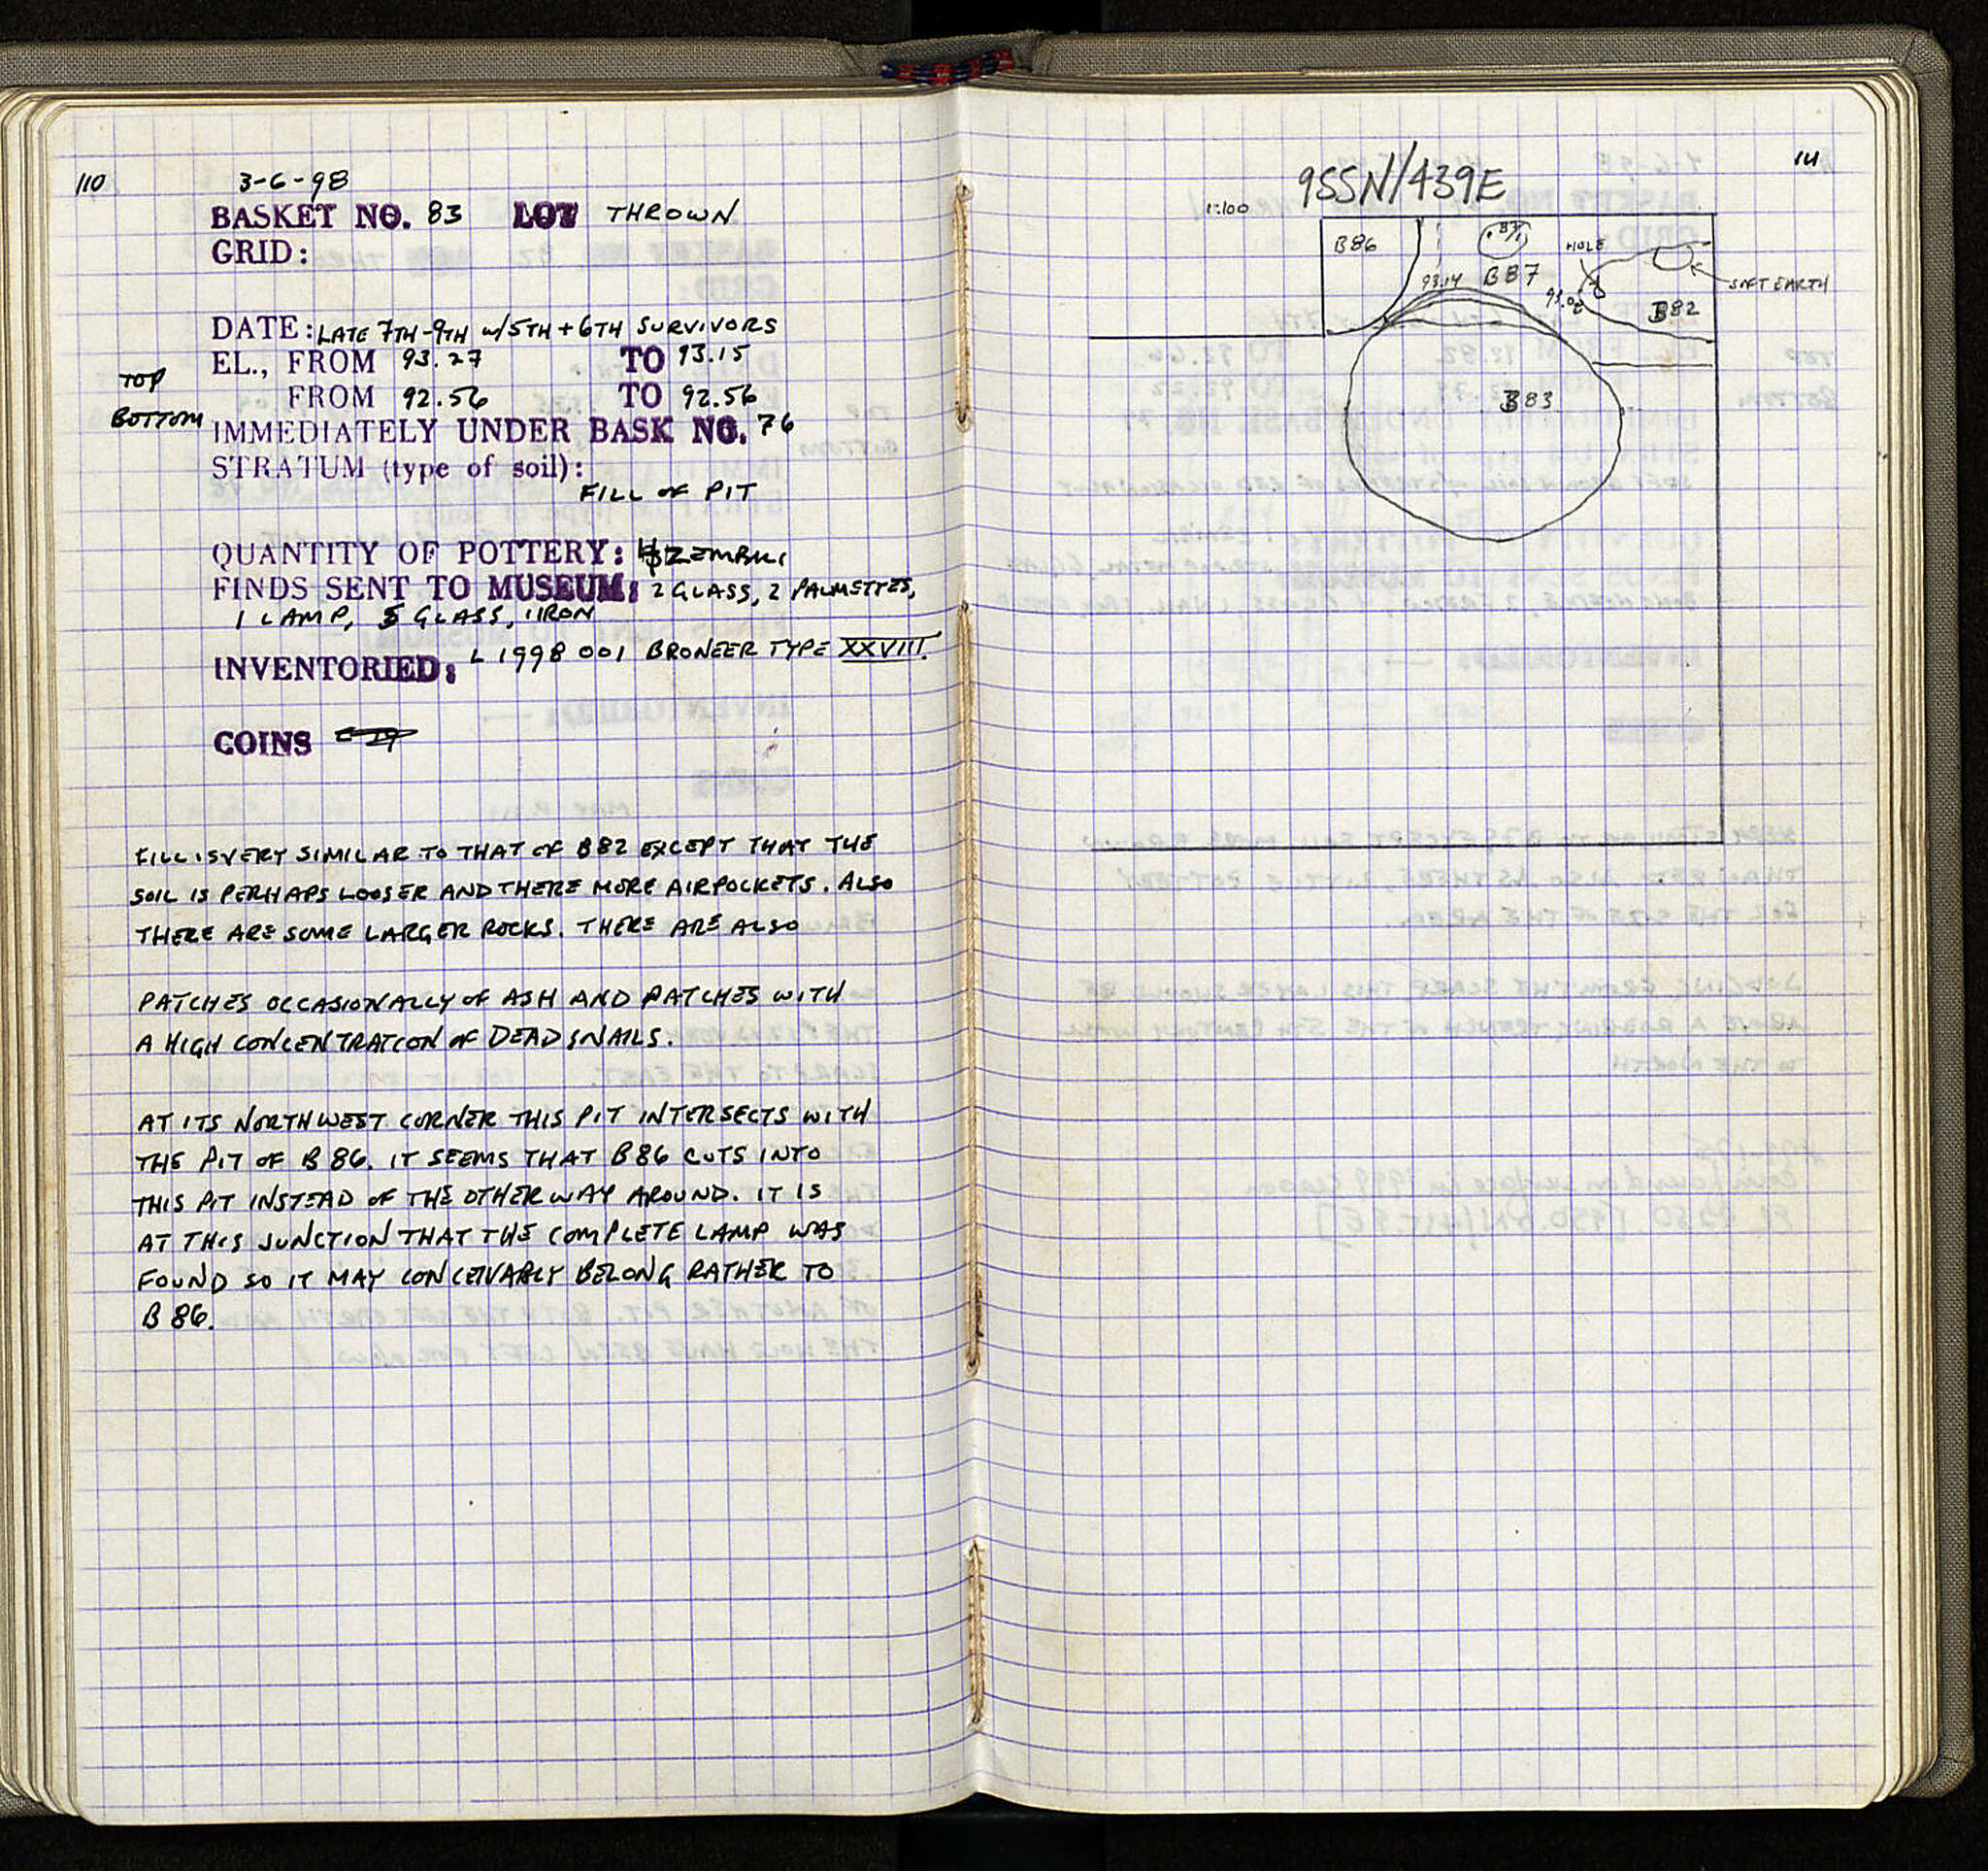 110
3-6-98
BASKET NO. 83 LOT THROWN
GRID:
DATE: LATE 7TH-9TH W/5TH+6TH SURVIVORS
EL., FROM 93.27 TO 93.15
TOP
FROM 92.56 TO 92.56
BOTTOM
IMMEDIATELY UNDER BASK NO. 76
STRATUM (type of soil):
FILL OF PIT
QUANTITY OF POTTERY: ZEMBILI
FINDS SENT TO MUSEUM: 2 GLASS, 2 PALMETTES,
1 LAMP, 5 GLASS, 1 IRON
INVENTORIED: L 1998 001 BRONEER TYPE XXVIII.
COINS
FILL IS VERY SIMILAR TO THAT OF B82 EXCEPT THAT THE
SOIL IS PERHAPS LOOSER AND THERE MORE AIRPOCKETS. ALSO
THERE ARE SOME LARGER ROCKS. THERE ARE ALSO
PATCHES OCCASIONALLY OF ASH AND PATCHES WITH
A HIGH CONCENTRATION OF DEAD SNAILS.
AT ITS NORTHWEST CORNER THIS PIT INTERSECTS WITH
THE PIT OF B 86. IT SEEMS THAT B86 CUTS INTO
THIS PIT INSTEAD OF THE OTHER WAY AROUND. IT IS
AT THIS JUNCTION THAT THE COMPLETE LAMP WAS
FOUND SO IT MAY CONCEIVABLY BELONG RATHER TO
B 86.
111
955N/439E
1:100
B86
HOLE
93.14 B87
SOFT EARTH
B82
B83